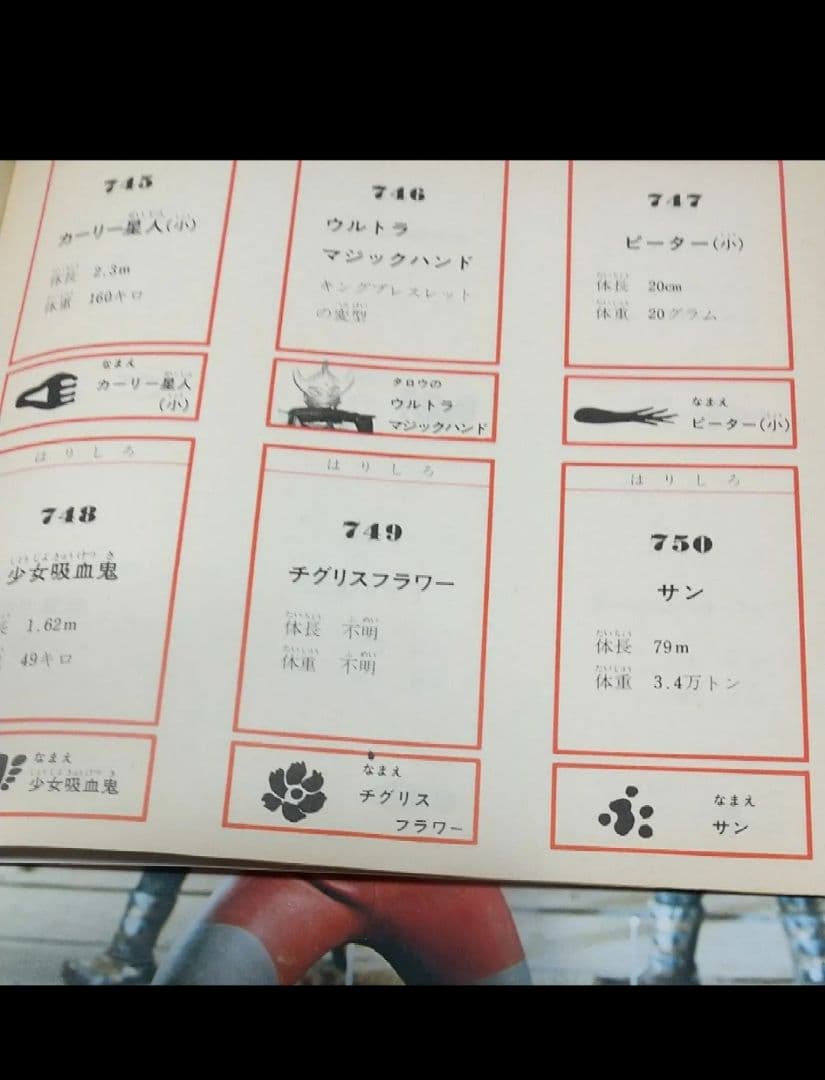 745
カーリー星人(小)
体長 2.3m
体重 160キロ
なまえ
カーリー星人
(小)
746
ウルトラ
マジックハンド
キングブレスレット
の変型
タロウの
ウルトラ
マジックハンド
747
ピーター(小)
体長 20cm
体重 20グラム
なまえ
ピーター(小)
はりしろ
748
少女吸血鬼
1.62m
49キロ
なまえ
少女吸血鬼
はりしろ
749
チグリスフラワー
体長 不明
体重 不明
なまえ
チグリス
フラワー
はりしろ
750
サン
体長 79m
体重 3.4万トン
なまえ
サン